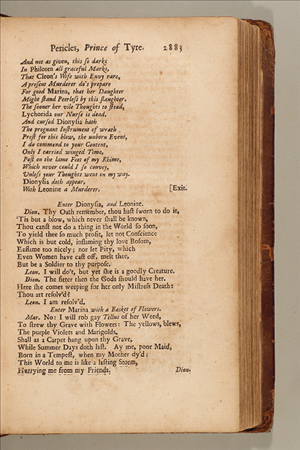 Pericles, Prince of Tyre. 2883
And not as given, this so darks
In Philoten all graceful Marks,
That Cleon's Wife with Envy rare,
A present Murderer do's prepare
For good Marina, that her Daughter
Might stand Peerless by this slaughter.
The sooner her vile Thoughts to stead,
Lychorida our Nurse is dead.
And cursed Dionysia hath
The pregnant Instrument of wrath
Prest for this blow, the unborn Event,
I do commend to your Content,
Only I carried winged Time,
Post on the lame Feet of my Rhime,
Which never could I so convey,
Unless your Thoughts went on my way.
Dionysia doth appear,
With Leonine a Murderer. [Exit.
Enter Dionysia, and Leonine.
Dion. Thy Oath remember, thou hast sworn to do it,
'Tis but a blow, which never shall be known,
Thou canst not do a thing in the World so soon,
To yield thee so much profit, let not Conscience
Which is but cold, inflaming thy love Bosom,
Enflame too nicely; nor let Pity, which
Even Women have cast off, melt thee,
But be a Soldier to thy purpose.
Leon. I will do't, but yet she is a goodly Creature.
Dion. The fitter then the Gods should have her.
Here she comes weeping for her only Mistress Death:
Thou art resolv'd?
Leon. I am resolv'd.
Enter Marina with a Basket of Flowers.
Mar. No: I will rob gay Tellus of her Weed,
To strew thy Grave with Flowers: The yellows, blews,
The purple Violets and Marigolds,
Shall as a Carpet hang upon thy Grave,
While Summer Days doth last. Ay me, poor Maid,
Born in a Tempest, when my Mother dy'd:
This World to me is like a lasting Storm,
Hurrying me from my Friends.
Dion.